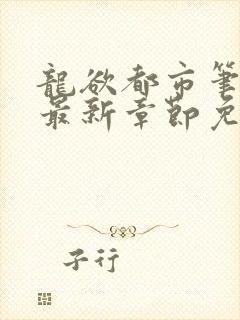 龍欲都市筆
最新章節免
子行